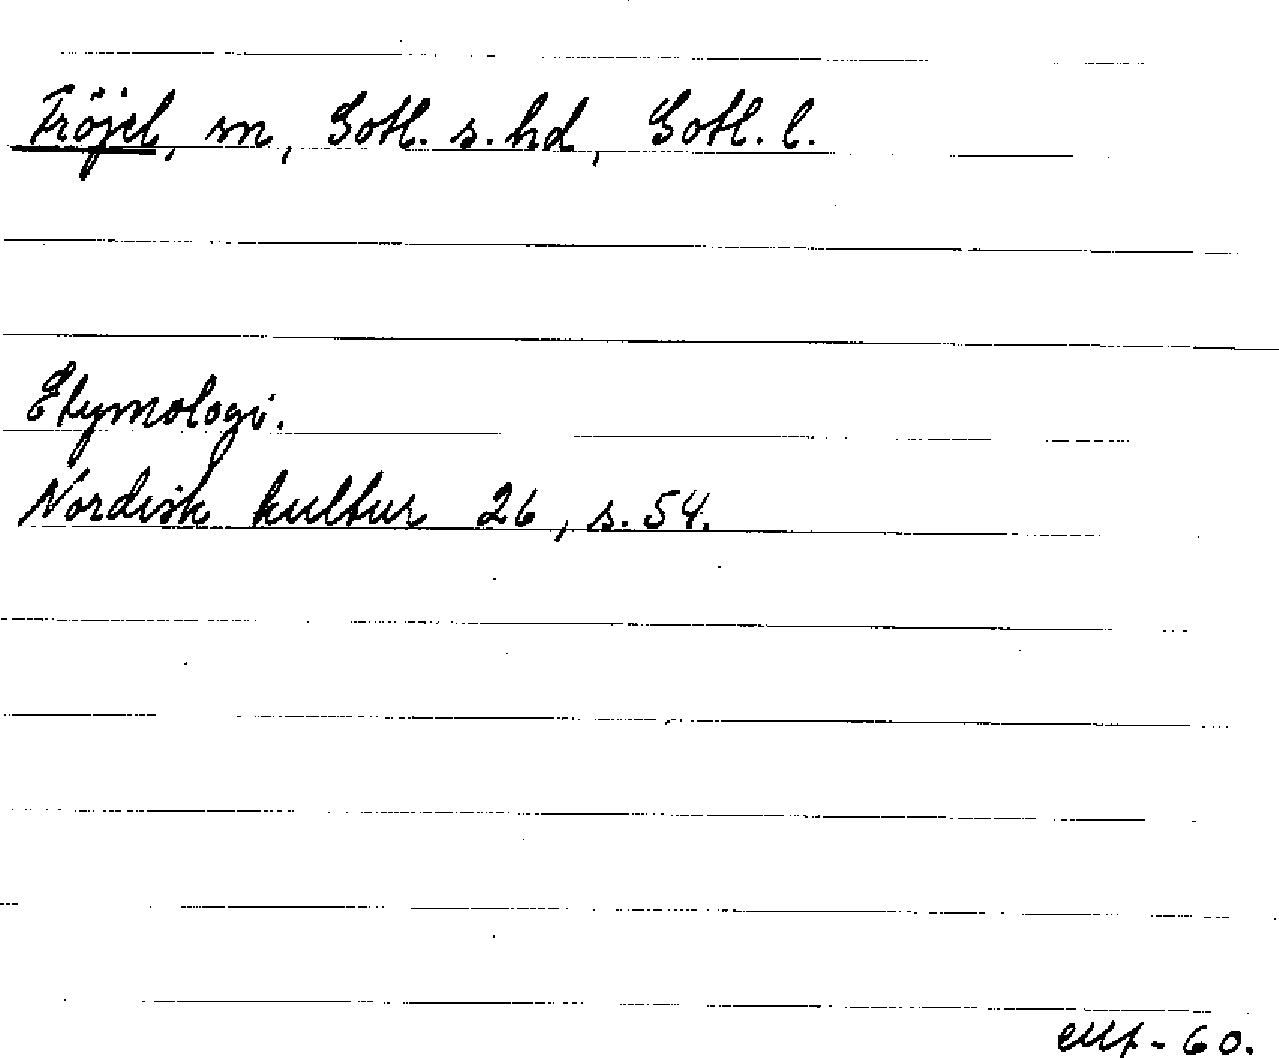 Fröjel, sn, Gotl. s. hd, Gotl. l.
Etymologi.
Nordisk kultur 26, s. 54.
-60.